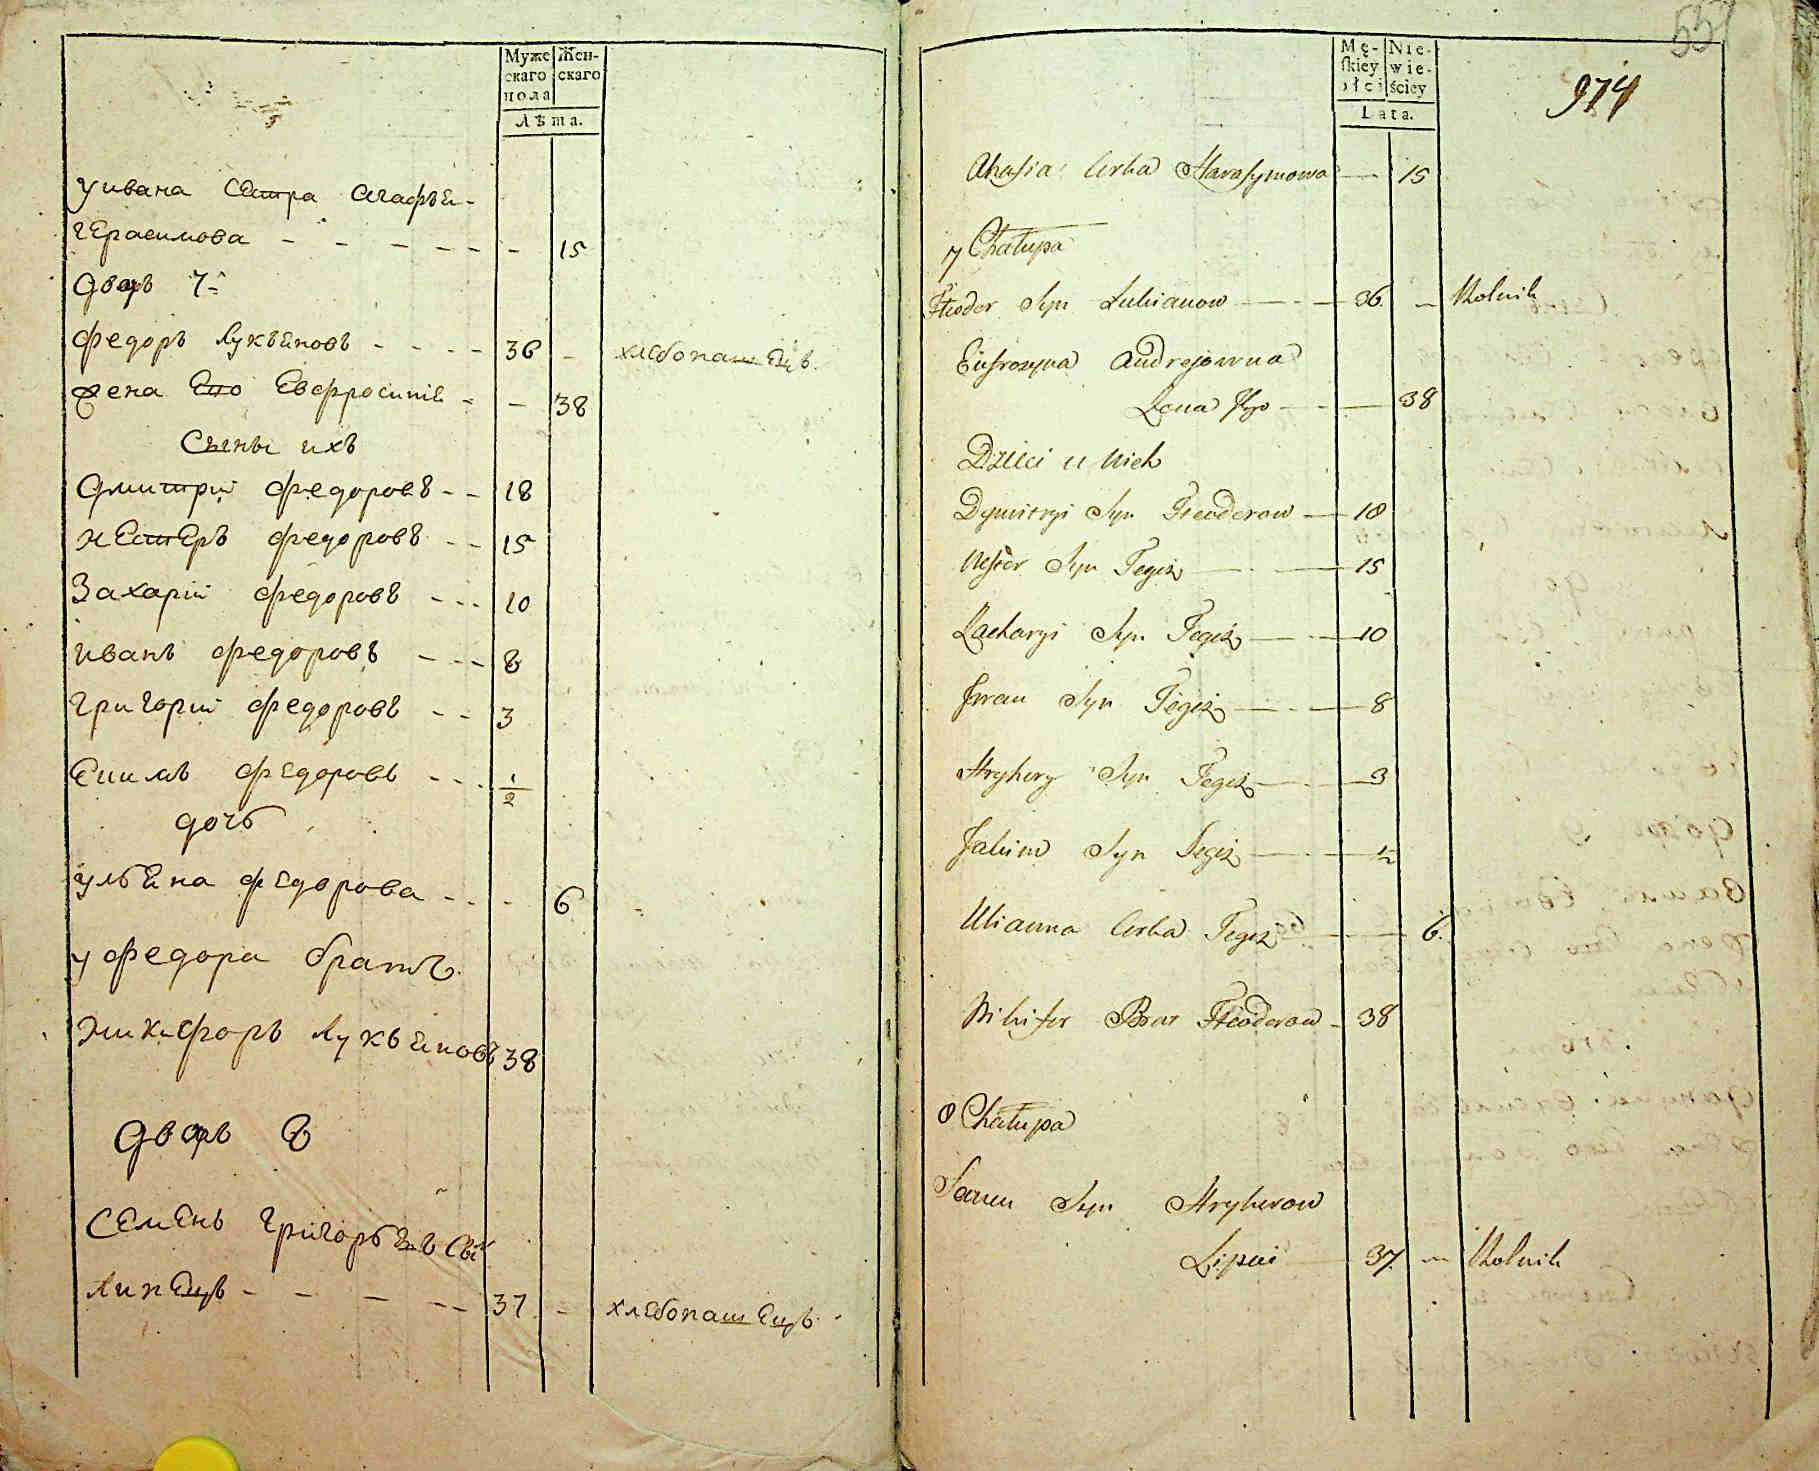 Муже
скаго
пола
Жен-
скаго
Лѣта.
у ивана сестра агафѣя -
герасимова - - - - - - 15
дворъ 7й
федоръ лукъяновъ - - - - 36 - хлебопашецъ.
жена его Евфросиниѣ - - 38
Сыны ихъ
дмитрий федоровъ - - 18
нестеръ федоровъ - - 15
Захарий федоровъ - - - 10
иванъ федоровъ - - - 8
григорий федоровъ - - 3
Екимъ федоровъ - - - 1/2
дочь
ульяна федорова - - - 6
у федора братъ
никифоръ лукъяновъ 38
дворъ 8
семенъ григорьевъ Сынъ
липецъ - - - - - 37 - хлебопашецъ
557
974
Mę-
skiey
płci
Nie-
wie-
ściey
Lata.
Ahafia Corka Harasymowa — 15
7 Chałupa
Fteodor Syn Lukianow — 36 — Rolnik
Eufrozyna Andrejowna
Żona Jego — 38
Dzieci u Nich
Dymitryi Syn Fteoderow — 18
Nester Syn Tegoż — 15
Zacharyi Syn Tegoż — 10
Jwan Syn Tegoż — 8
Hryhory Syn Tegoż — 3
Jakim Syn Tegoż — 1/2
Ulianna Corka Tegoż — 6.
Nikifor Brat Fteoderow - 38
8 Chałupa
Semen Syn Hryhorow
Lipni — 37 — Rolnik